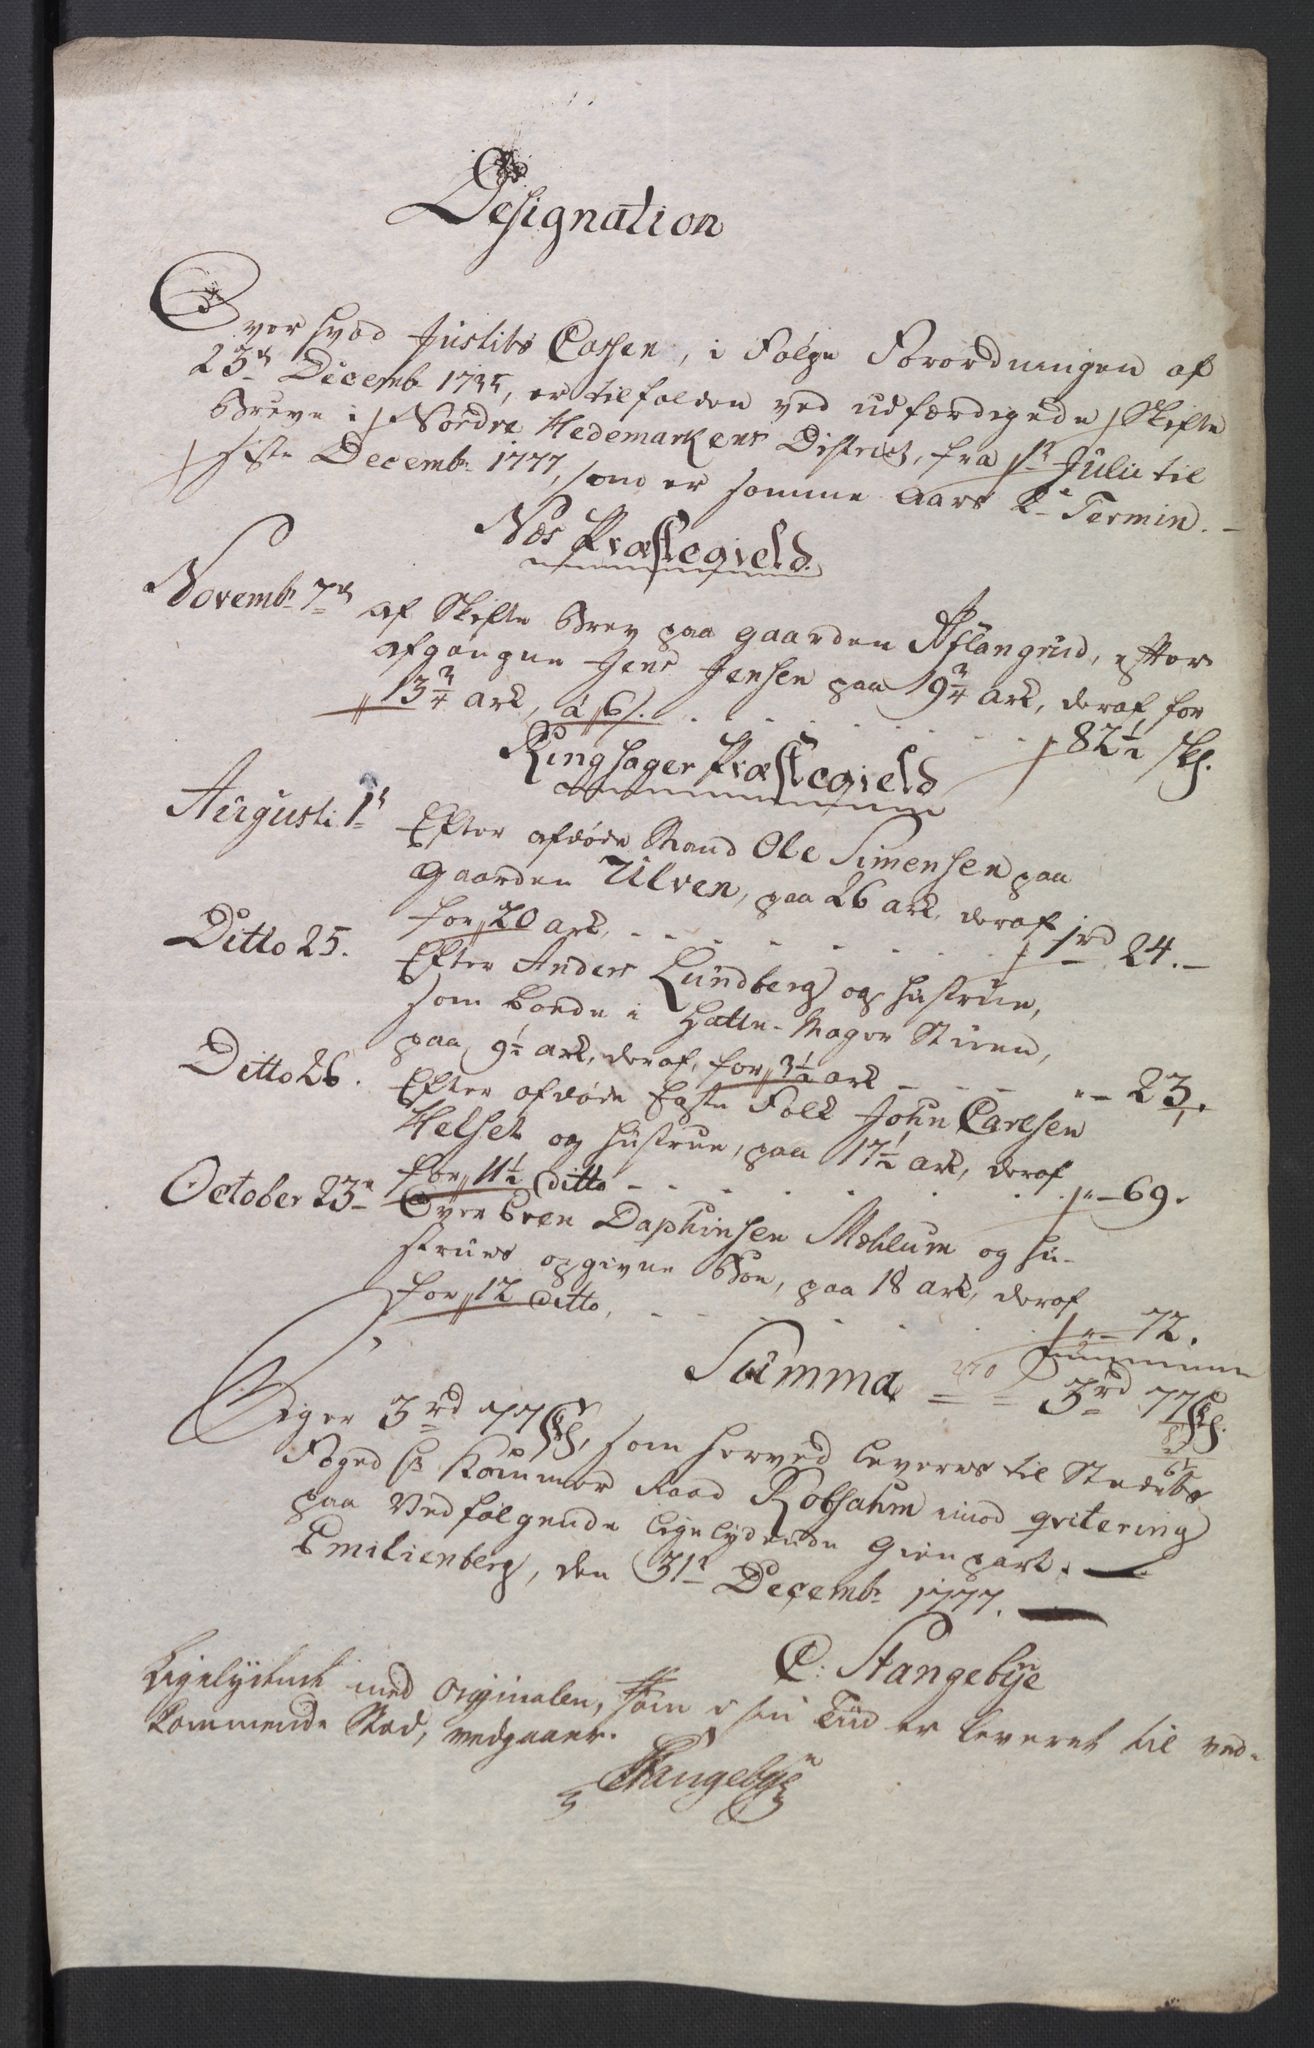 Designation
Over hvad Justits Cassen, i Følge Forordningen af
23de Decembr 1735, er tilfalden ved udfærdigede Skifte
Breve i Nordre Hedemarkens District, fra 1te Julii til
siste Decembr 1777, som er samme Aars 2de Termin.
Næs Præstegield.
Novembr 7de af Skifte Brev paa gaarden Aflangrud, efter
afgangne Jens Jensen paa 19 3/4 ark, deraf for
13 3/4 ark, à 6 s. . . . . 82 1/2 skl.
Ringsager Præstegield
Augusti 1te Efter afdøde Mand Ole Simensen paa
Gaarden Ulven, paa 26 ark, deraf
for 20 ark, - - - 1 rd 24. -
Ditto 25. Efter Anders Lundberg og hustrue,
som boede i Hatte-Mager Stuen,
paa 9 1/2 ark, deraf, for 3 1/2 ark - - - 23.
Ditto 26. Efter afdøde Egte Folk John Carlsen
Helset og hustrue, paa 17 1/2 ark, deraf
for 11 1/2 ditto - . . . - 69.
October 23de Over Even Daphinsen Mæhlum og hu-
strues opgivne Boe, paa 18 ark, deraf
for 12 ditto, - - - . . - 72.
Summa = = 3 rd 77 skl.
Siger 3 rd 77 skl, som herved leveres til Stedets
Foged Hr Kammer Raad Robsahm imod qvitering
paa Vedfølgende ligelydende Gienpart.
Emilienberg, den 31te Decembr 1777.
C: Stangebye
Ligelydende med Originalen, som i sin Tiid er leveret til ved-
kommende Stæd, vedgaaes.
Stangebye